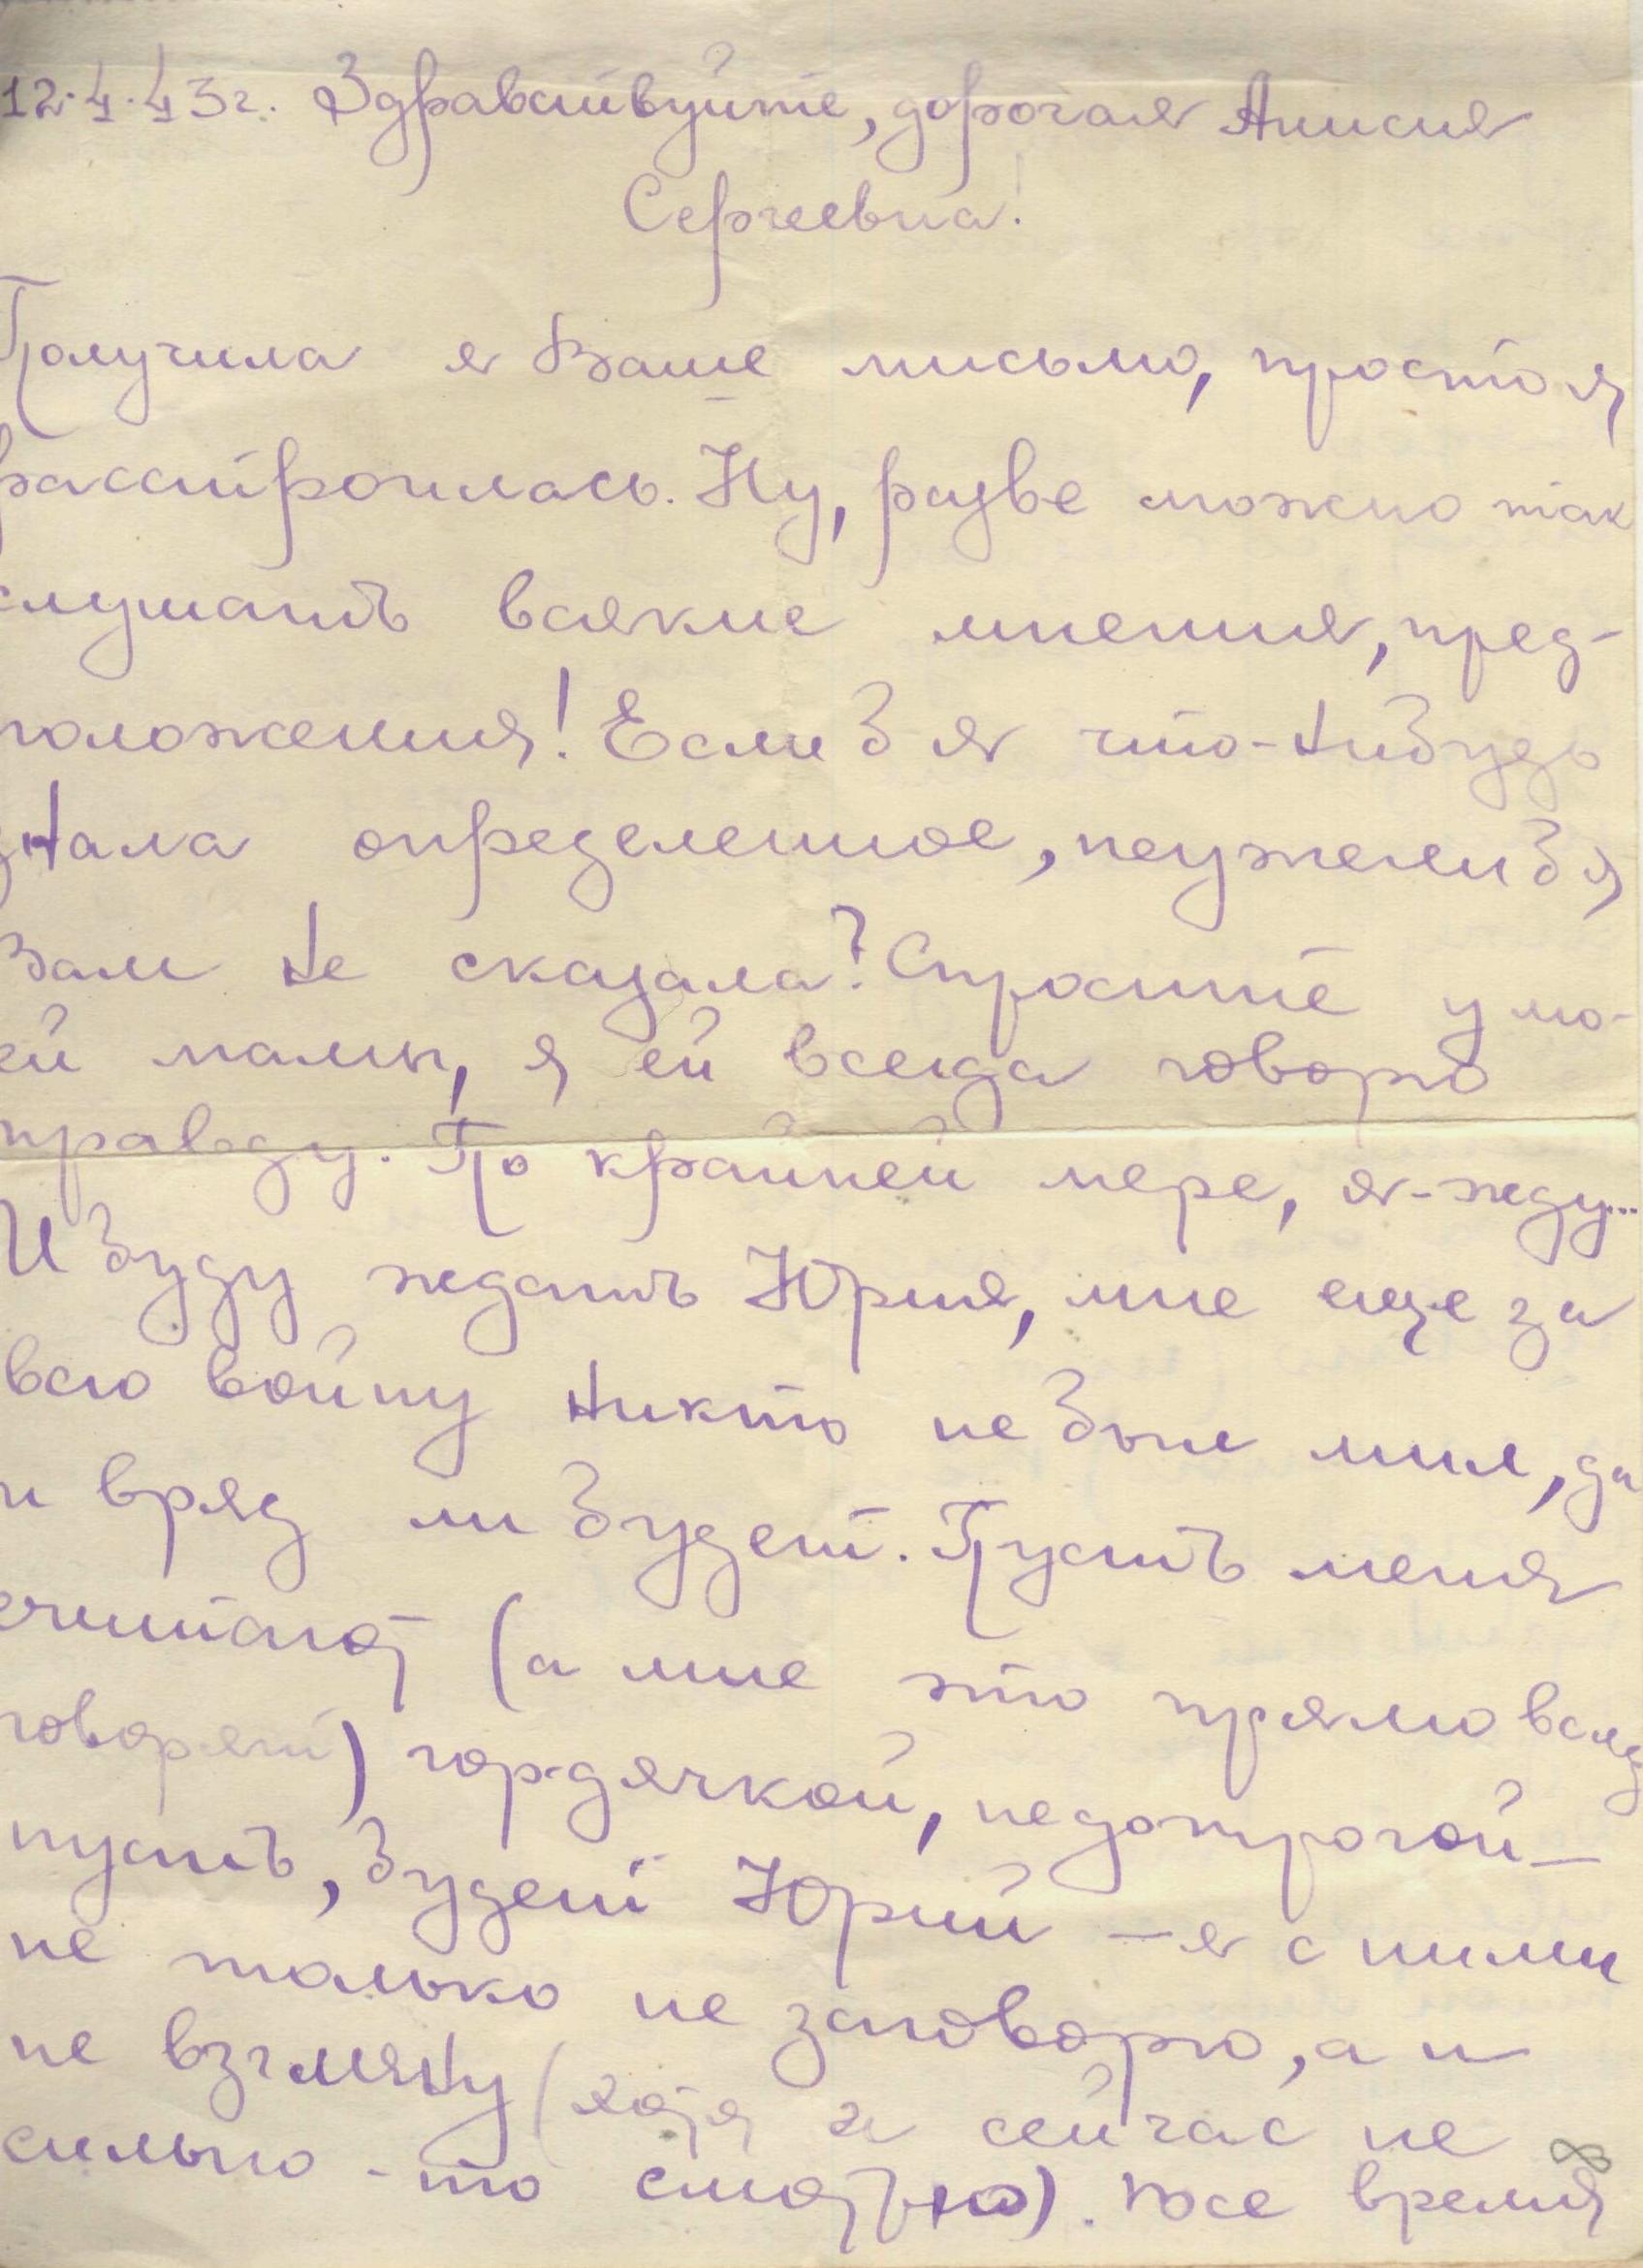 12.4.43г. Здравствуйте, дорогая Анисия
Сергеевна!
Получила я Ваше письмо, просто я
расстроилась. Ну, разве можно так
слушать всякие мнения, пред-
положения! Если б я что-нибудь
знала определенное, неужели б я
Вам не сказала? Спросите у мо-
ей мамы, я ей всегда говорю
правду. По крайней мере, я-жду...
И буду ждать Юрия, мне еще за
всю войну никто не был мил, да
и вряд ли будет. Пусть меня
считают (а мне это прямо вслед
говорят) гордячкой, недотрогой —
пусть, будет Юрий — я с ними
не только не заговорю, а и
не взгляну (хотя и сейчас не
сильно-то смотрю). Все время